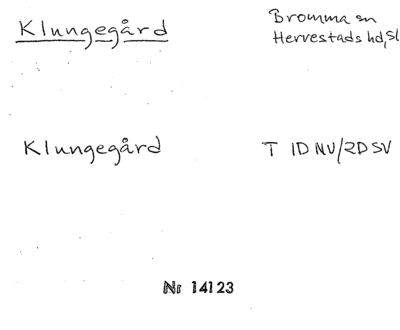 Klungegård
Bromma sn
Hervestads hd, Sk
Klungegård
T 1D NV/2D SV
Nr 14123